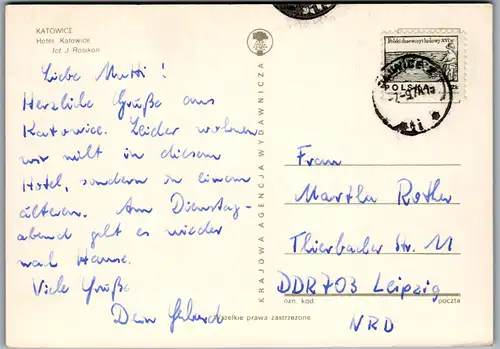 KATOWICE
Hotel Katowice
fot. J. Rosikoń
Liebe Mutti!
Herzliche Grüße aus
Katowice. Leider wohnen
wir nicht in diesem
Hotel, sondern in einem
älteren. Am Dienstag-
abend geht es wieder
nach Hause.
Viele Grüße
Dein Gerhard
KRAJOWA AGENCJA WYDAWNICZA
POLSKA
Frau
Martha Rother
Thierbacher Str. 11
DDR 703 Leipzig
ozn. kod
poczta
NRD
Wszelkie prawa zastrzeżone